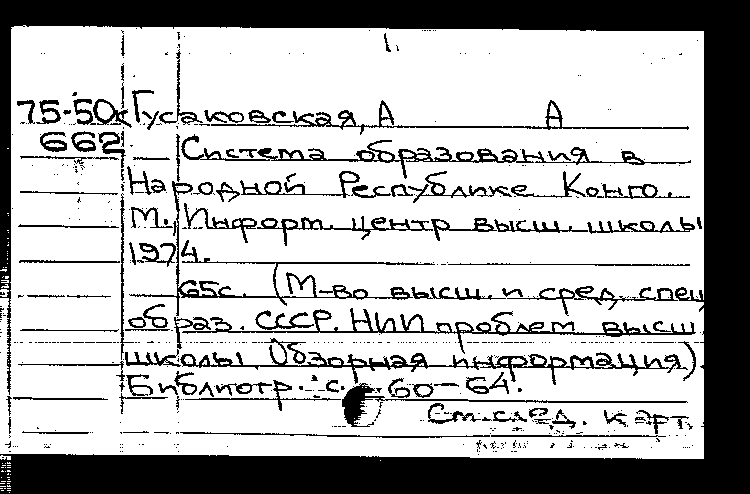 1.
75-50к Гусаковская, А А
662 Система образования в
Народной Республике Конго.
М., Информ. центр высш. школы
1974.
65с. (М-во высш. и сред. спец
образ. СССР. НИИ проблем высш
школы. Обзорная информация).
Библиогр.: с. 60-64.
См. след. карт.